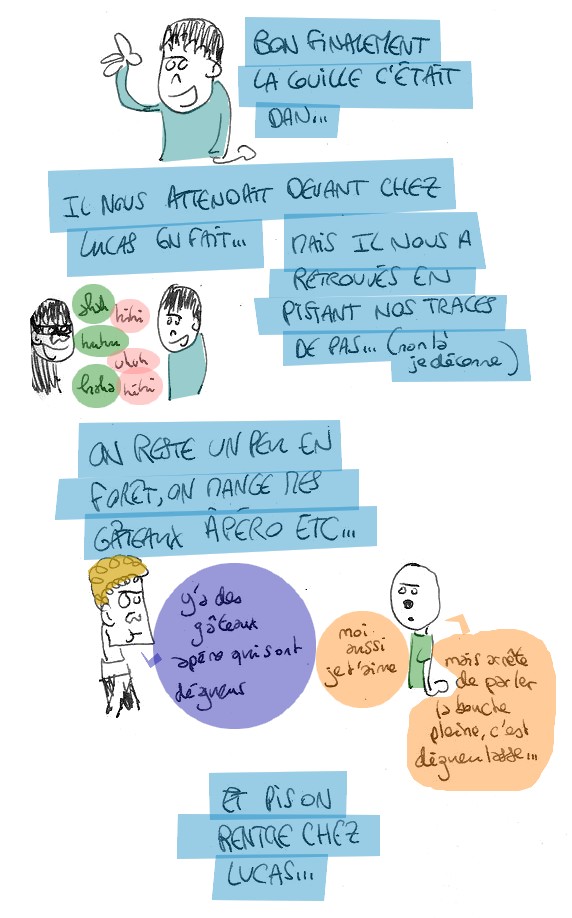 BON FINALEMENT
LA COUILLE C'ÉTAIT
DAN...
IL NOUS ATTENDAIT DEVANT CHEZ
LUCAS EN FAIT...
MAIS IL NOUS A
RETROUVÉS EN
PISTANT NOS TRACES
DE PAS... (non là
je déconne)
huhu
hihi
haha
hihi
ON RESTE UN PEU EN
FORÊT, ON MANGE MES
GÂTEAUX ÂPÉRO ETC...
y'a des
gâteaux
apéro qui sont
dégueus
moi
aussi
je t'aime
mais arrête
de parler
la bouche
pleine, c'est
dégueulasse...
ET PIS ON
RENTRE CHEZ
LUCAS...